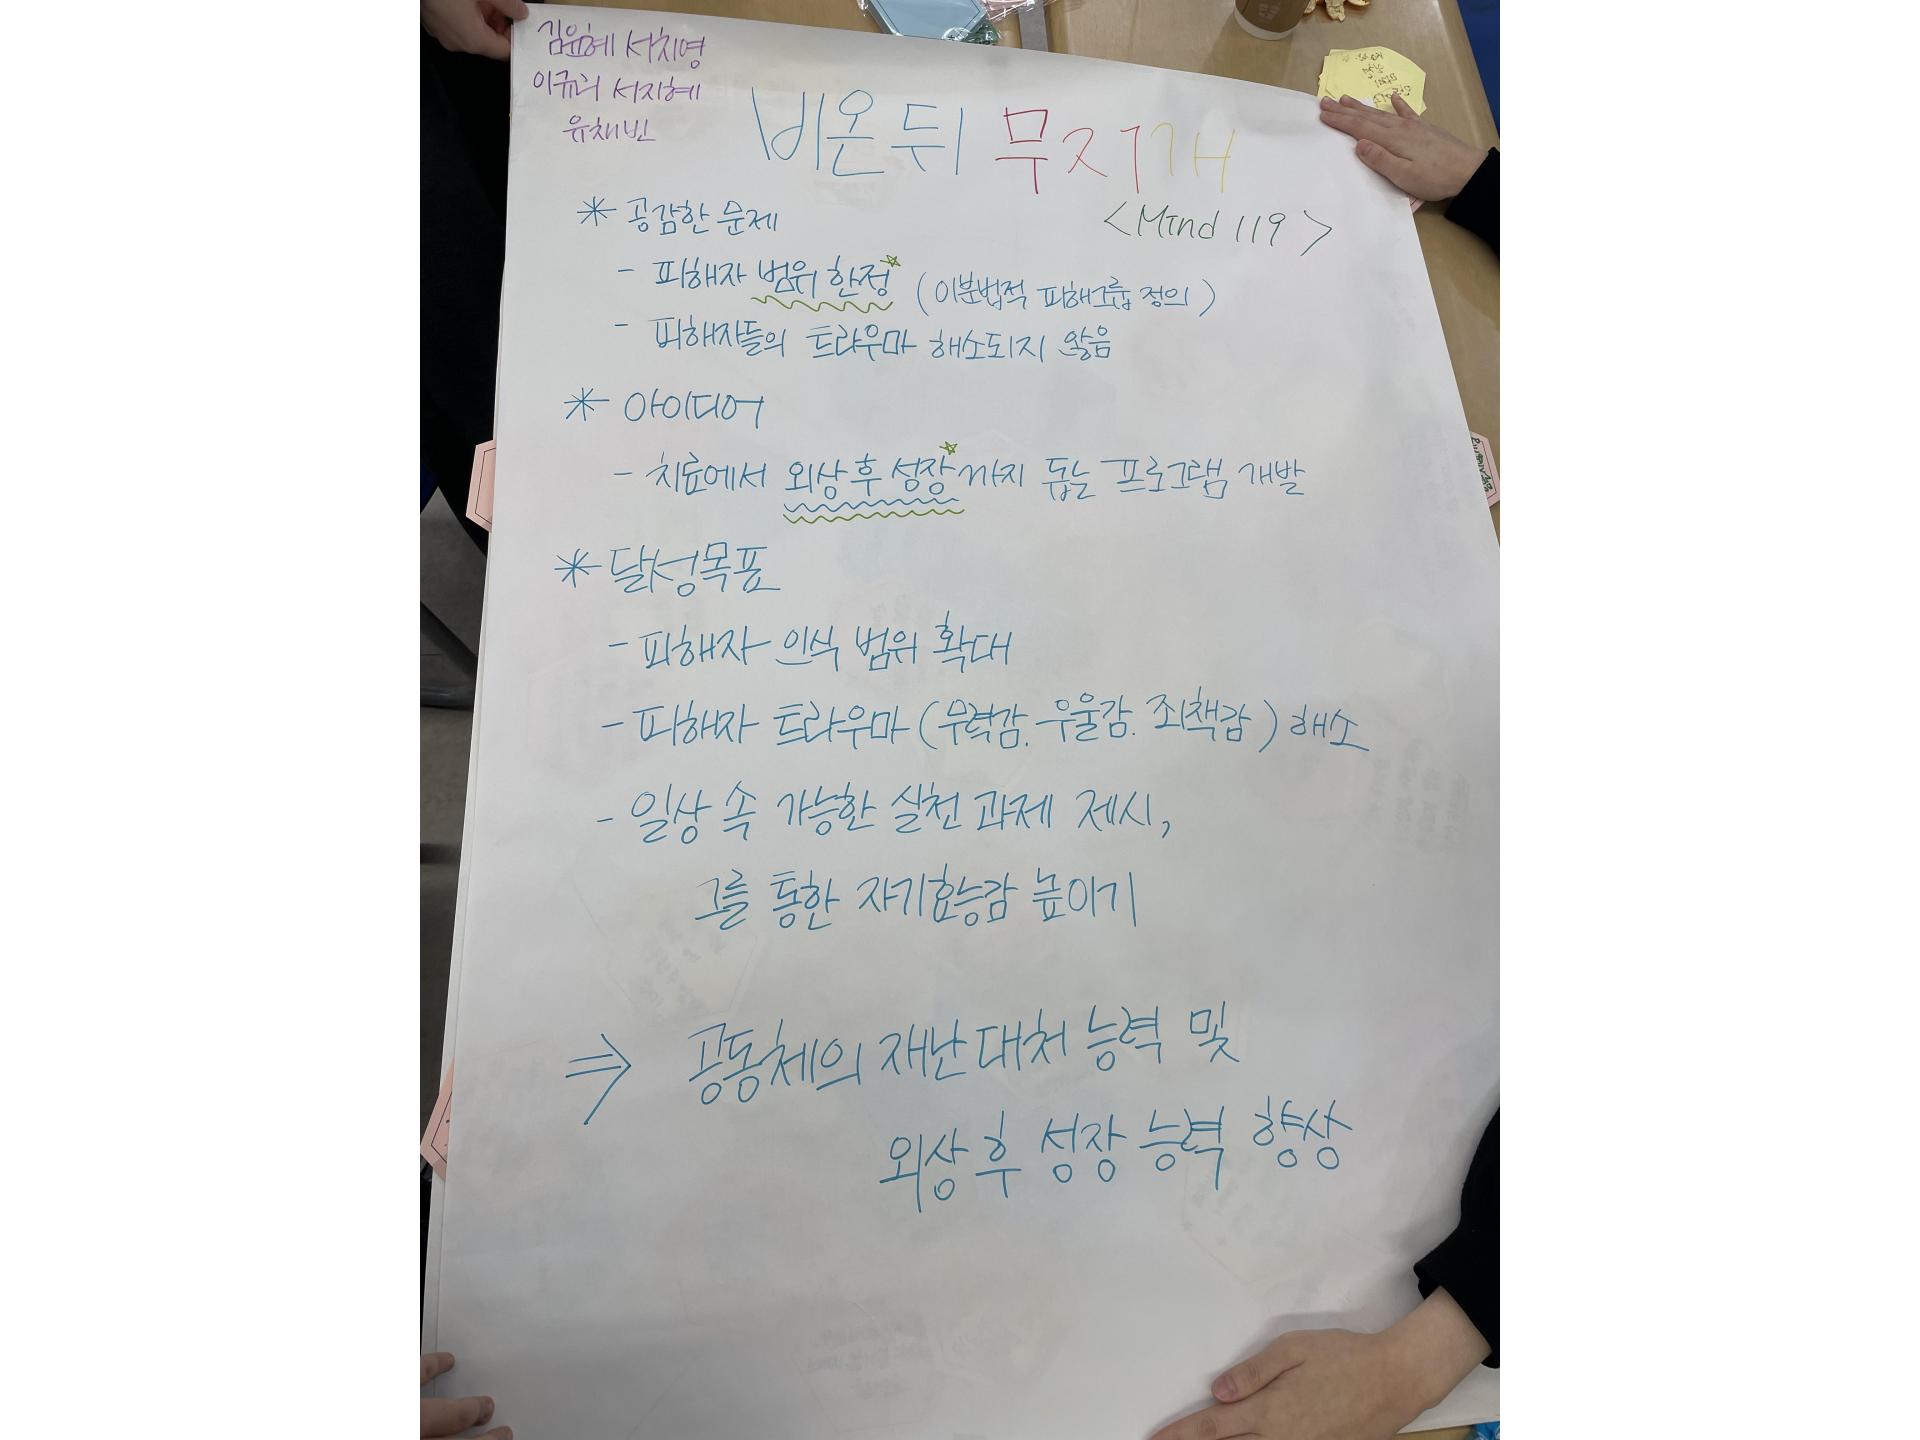 김윤혜 서치영
이규리 서지혜
유채빈
비온뒤 무지개
<Mind 119>
* 공감한 문제
- 피해자 범위 한정 (이분법적 피해그룹 정의)
- 피해자들의 트라우마 해소되지 않음
* 아이디어
- 치료에서 외상 후 성장까지 돕는 프로그램 개발
* 달성목표
- 피해자 인식 범위 확대
- 피해자 트라우마 (무력감. 우울감. 죄책감) 해소
- 일상 속 가능한 실천 과제 제시,
그를 통한 자기효능감 높이기
⇒ 공동체의 재난 대처 능력 및
외상 후 성장 능력 향상